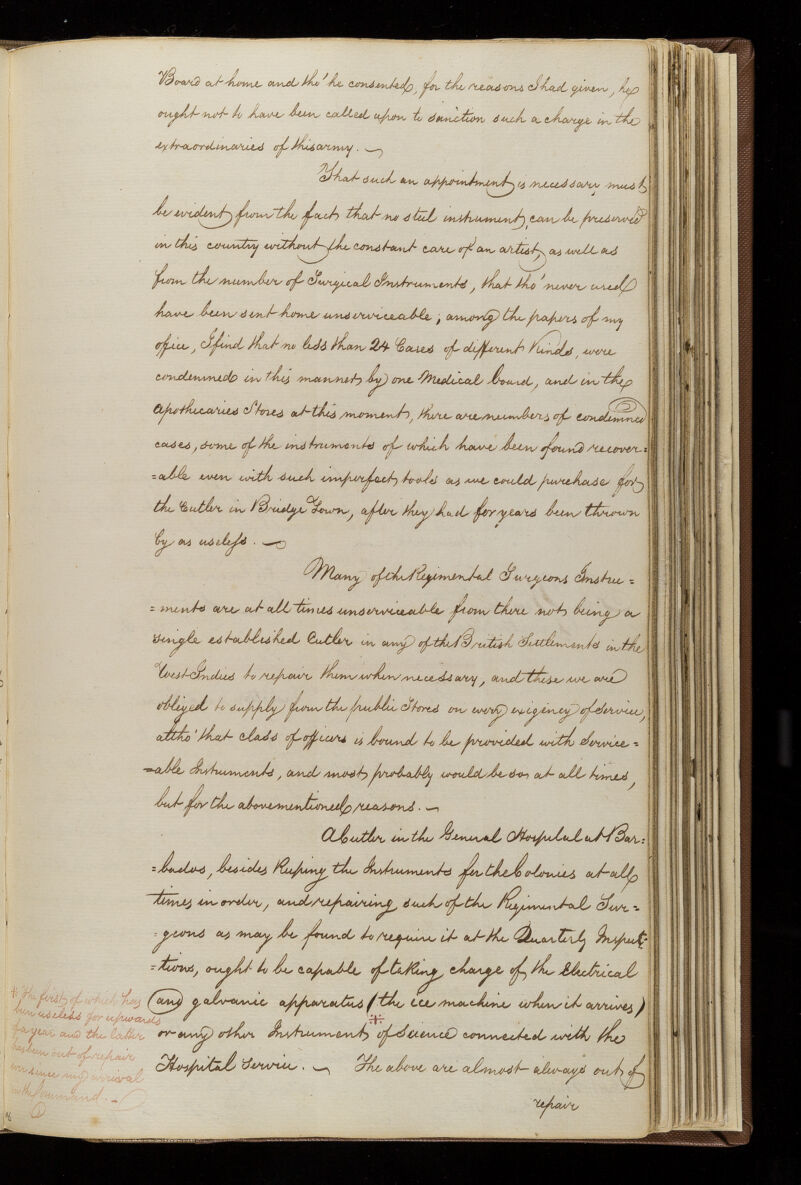 Board at home and tho' he consented, for the reasons I had given, he
ought not to have been called upon to sanction such a charge in the
extraordinaries of this army. —
That such an appointment is necessary must
be evident from the fact that no steel instrument, can be preserved
in this country without the constant care of an artist, as well as
from the number of Surgical Instruments, that tho' never used
have been sent home unserviceable; among the papers of my
office, I find that no less than 24 Cases of different Kinds, were
condemned in this manner by one Medical board, and in the
Apothecaries Stores at this moment, there are numbers of condemned
cases, some of the instruments of which have been found recover=
=able even with such imperfect tools as we could purchase for
the Cutler in Bridge Town, after they had for years been thrown
by as useless. —
Many of the Regimental Surgeons Instru=
=ments are at all times unserviceable from there not being a
single established Cutler in any of the British Settlements in the
West Indies to repair them when necessary, and these we are
obliged to supply from the public Stores on every exigency of Service,
altho' that class of officers is bound to be provided with Service=
=able Instruments, and most probably would be so at all times,
but for the abovementioned reasons. —
A Cutler in the General Hospital at Bar=
=bados, besides Keeping the Instruments for the Colonies at all
times in order, and repairing such of the Regimental Sur=
=geons as may be found to require it at the Quarterly Inspect=
=tions, ought to be capable of taking charge of the Electrical
and galvanic apparatus (the ice machine when it arrives)
*
or any other Instrument of Science connected with the
Hospital Service. — The above are almost always out of
repair
* The first of which has
been useless for upwards
of a year and the latter
has been out of repair
ever since my arrival
in the Command. —